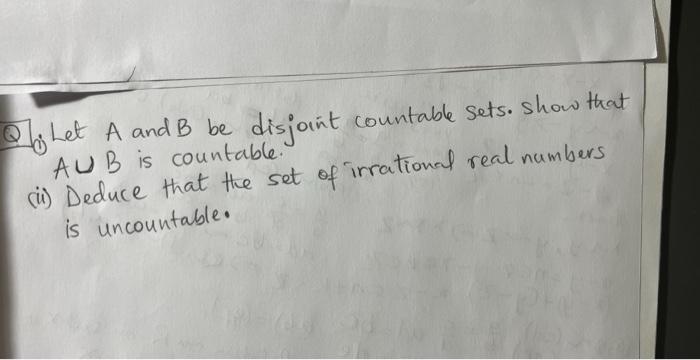 Q (i) Let A and B be disjoint countable sets. Show that
A ∪ B is countable.
(ii) Deduce that the set of irrational real numbers
is uncountable.